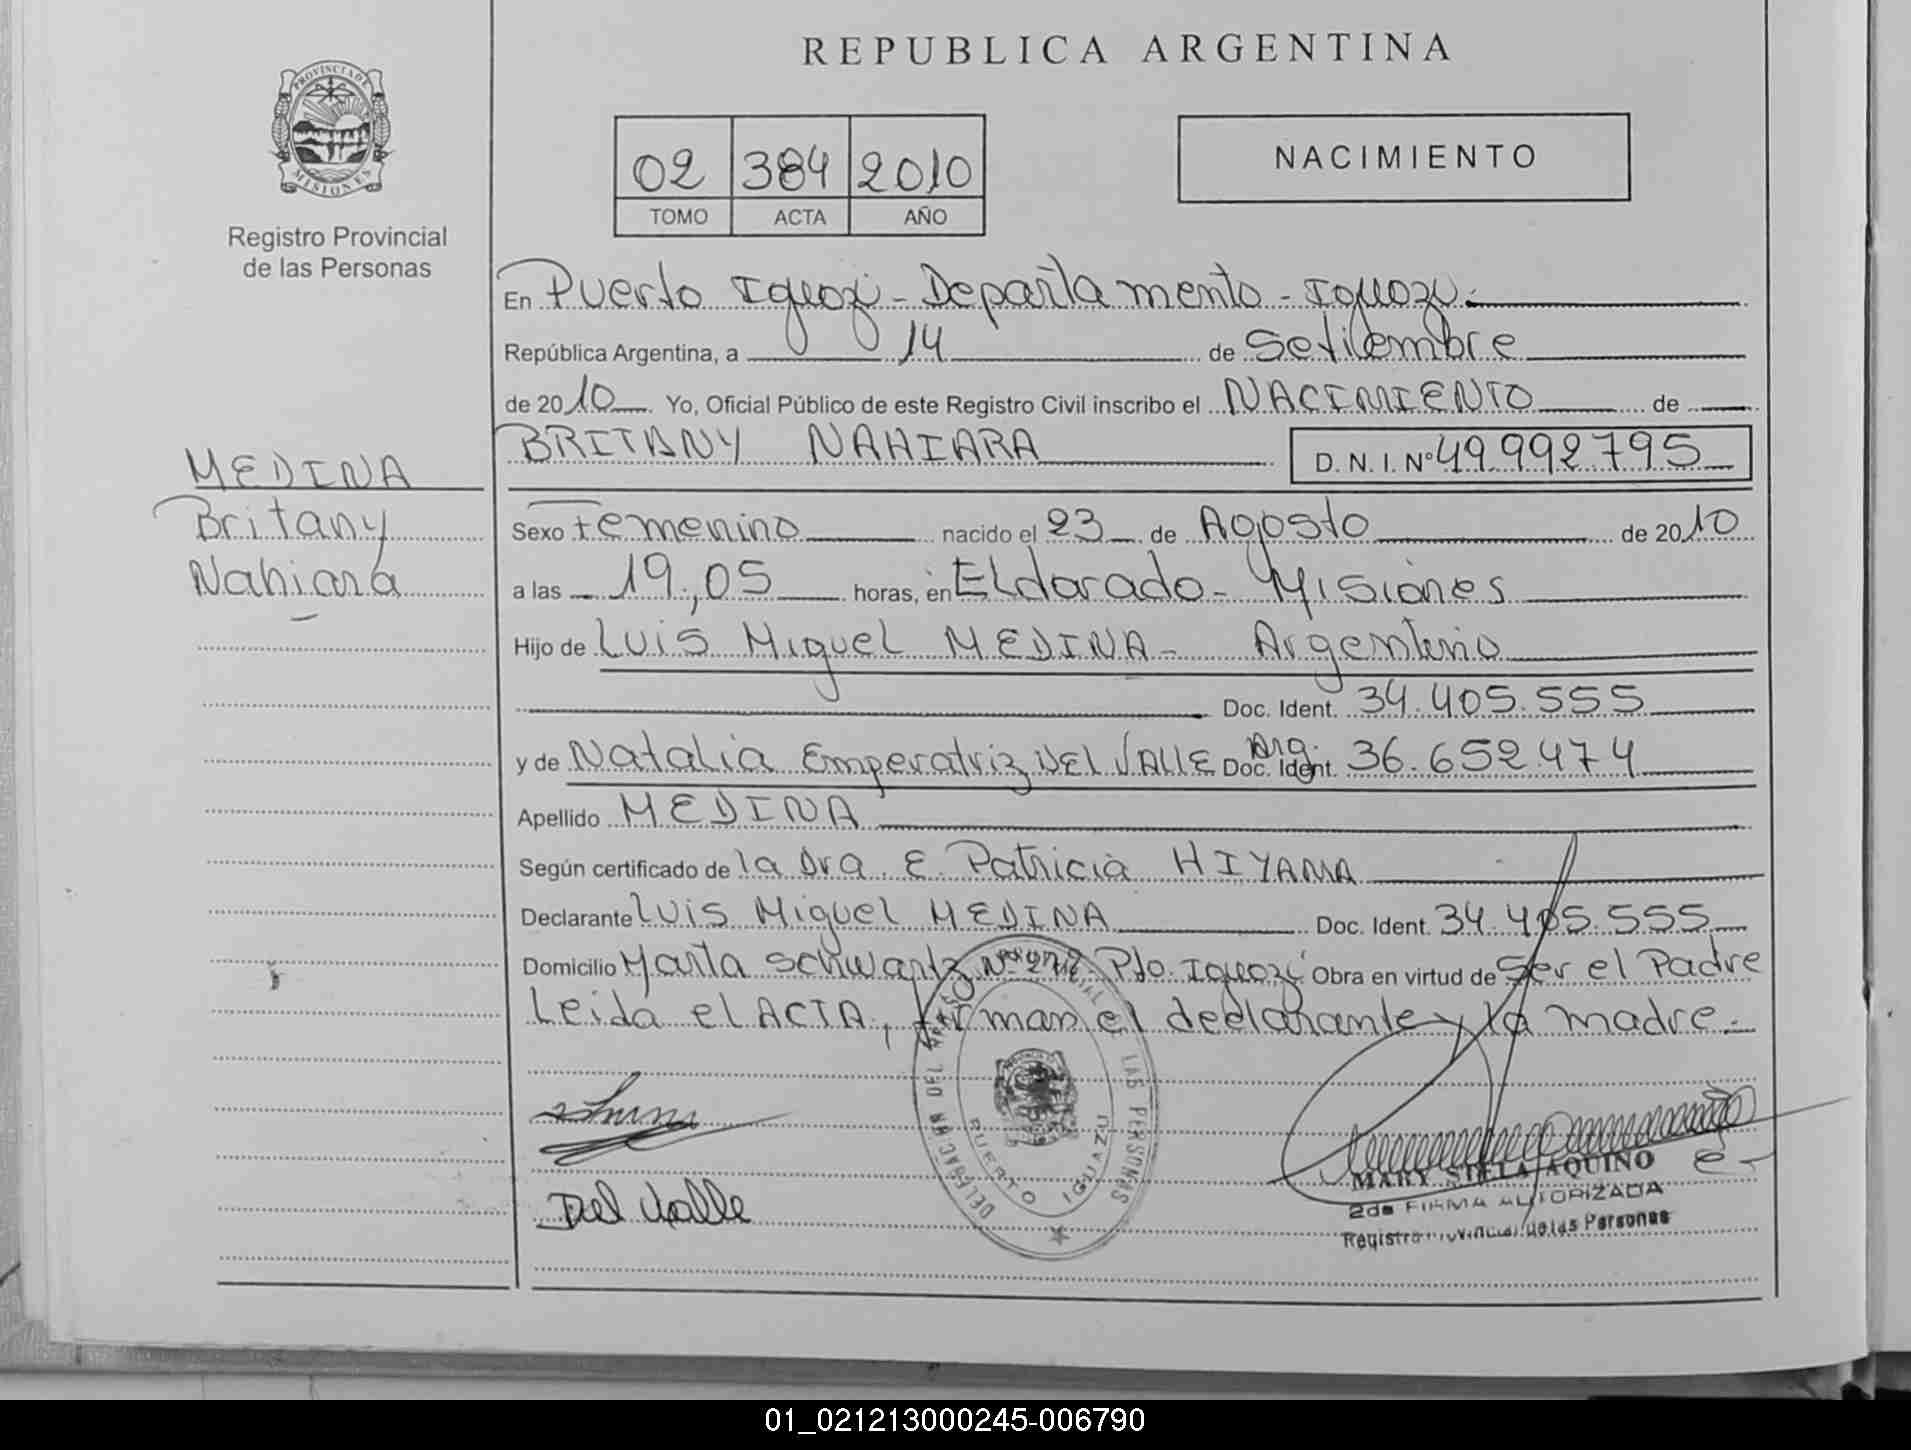 REPUBLICA ARGENTINA
PROVINCIA DE MISIONES
Registro Provincial
de las Personas
02 384 2010
TOMO ACTA AÑO
NACIMIENTO
En Puerto Iguazú - Departamento - Iguazú.
República Argentina, a 14 de Setiembre
de 2010. Yo, Oficial Público de este Registro Civil inscribo el NACIMIENTO de
BRITANY NAHIARA D. N. I. N° 49.992.795
MEDINA
Britany
Nahiara
Sexo Femenino nacido el 23 de Agosto de 2010
a las 19,05 horas, en Eldorado - Misiones
Hijo de Luis Miguel MEDINA - Argentino
Doc. Ident. 34.405.555
y de Natalia Emperatriz DEL VALLE Arg. Doc. Ident. 36.652.474
Apellido MEDINA
Según certificado de la Dra. E. Patricia HIYAMA
Declarante Luis Miguel MEDINA Doc. Ident. 34.405.555
Domicilio Marta Schwartz N° Pto. Iguazú Obra en virtud de Ser el Padre
Leida el ACTA, firman el declarante y la madre.
Del Valle
DELEGACION DEL REGISTRO PROVINCIAL DE LAS PERSONAS
PUERTO IGUAZU
MARY STELA AQUINO
2da FIRMA AUTORIZADA
Registro Provincial de las Personas
01_021213000245-006790